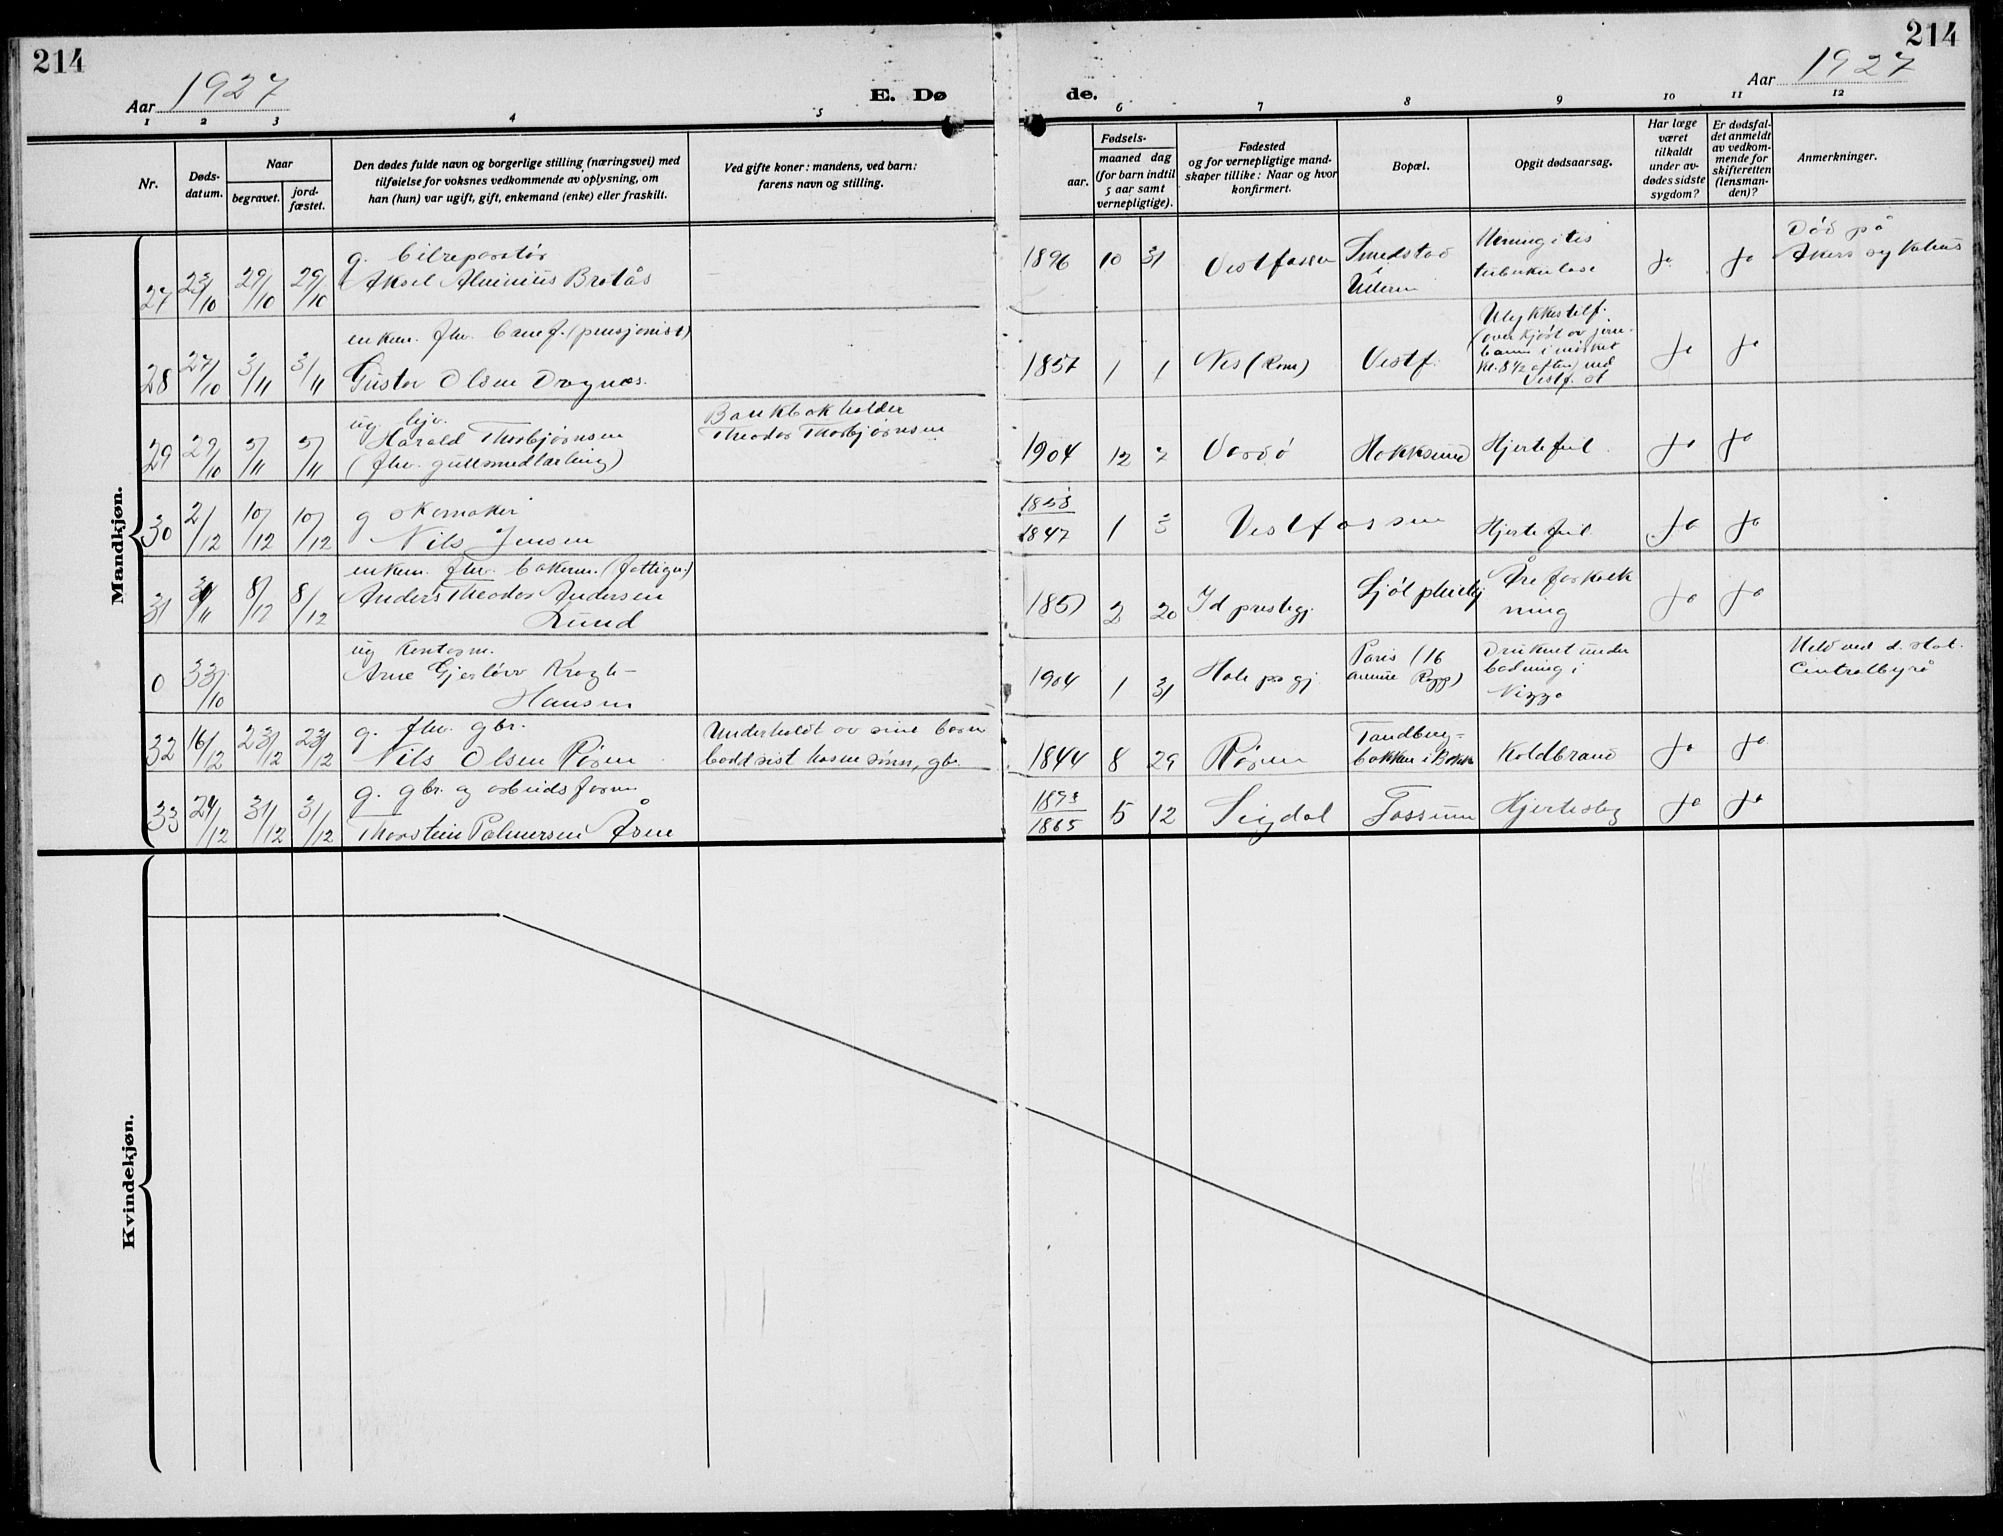 214
214
Aar 1927
E. Dø
de.
Aar 1927
1 2 3 4 5 6 7 8 9 10 11 12
Nr.
Døds-
datum.
Naar
begravet.
jord-
fæstet.
Den dødes fulde navn og borgerlige stilling (næringsvei) med
tilføielse for voksnes vedkommende av oplysning, om
han (hun) var ugift, gift, enkemand (enke) eller fraskilt.
Ved gifte koner: mandens, ved barn:
farens navn og stilling.
Fødsels-
aar.
maaned dag
(for barn indtil
5 aar samt
vernepligtige).
Fødested
og for vernepligtige mand-
skaper tillike: Naar og hvor
konfirmert.
Bopæl.
Opgit dødsaarsag.
Har læge
været
tilkaldt
under av-
dødes sidste
sygdom?
Er dødsfal-
det anmeldt
av vedkom-
mende for
skifteretten
(lensman-
den)?
Anmerkninger.
Mandkjøn.
27 23/10 29/10 29/10
g. bilreparatør
Aksel Brotås
1896 10 31 Vestfossen
Smedstad
Meningitis
tuberkulose
ja ja
Död på
Akers sykehus
28 27/10 3/11 3/11
enkem. fhv. banef. (pensjonist)
Gustav Olsen Dragnæs.
1857 1 1 Nes (Rom) Vestf.
Ulykkestilf.
(overkjørt av jern-
bane i mørket
kl. 8 1/2 aften) ved
Vestf. st
ja ja
29 29/10 5/11 5/11
ug. hjv.
Harald Thorbjørnsen
(fhv. gullsmedlærling)
Bankbokholder
Theodor Thorbjørnsen
1904 12 7 Vardø Hokksund Hjertefeil.
ja ja
30 2/12 10/12 10/12
g skomaker
Nils Jensen
1847 1 3 Vestfossen Hjertefeil
ja ja
31 8/12 8/12
enkem. fhv. bakerm. (fattigu.)
Anders Theodor Andersen
Lund
2 20 Id prestegj.
Åreforkalk
ning
ja ja
0
ug kontorm.
Arne Gjerløw Krogh-
Hansen
1904 1 31 Hole pr gj.
Paris (16
avenue Rapp)
Druknet under
badning i
Nizza
Meld ved d. stat.
Centralbyrå
32 16/12 23/12 23/12
g. fhv. gbr.
Nils Olsen Røren
Underholdt av sine barn
bodd sist hos en sønn, gbr.
1844 8 29 Røren
Tandberg-
bakken i
Koldbrand
ja ja
33 24/12 31/12 31/12
g. gbr. og arbeidsform
Thorstein Palmersen Åsen
1893/1865 5 12 Sigdal Fossum Hjerteslag
ja ja
Kvindekjøn.